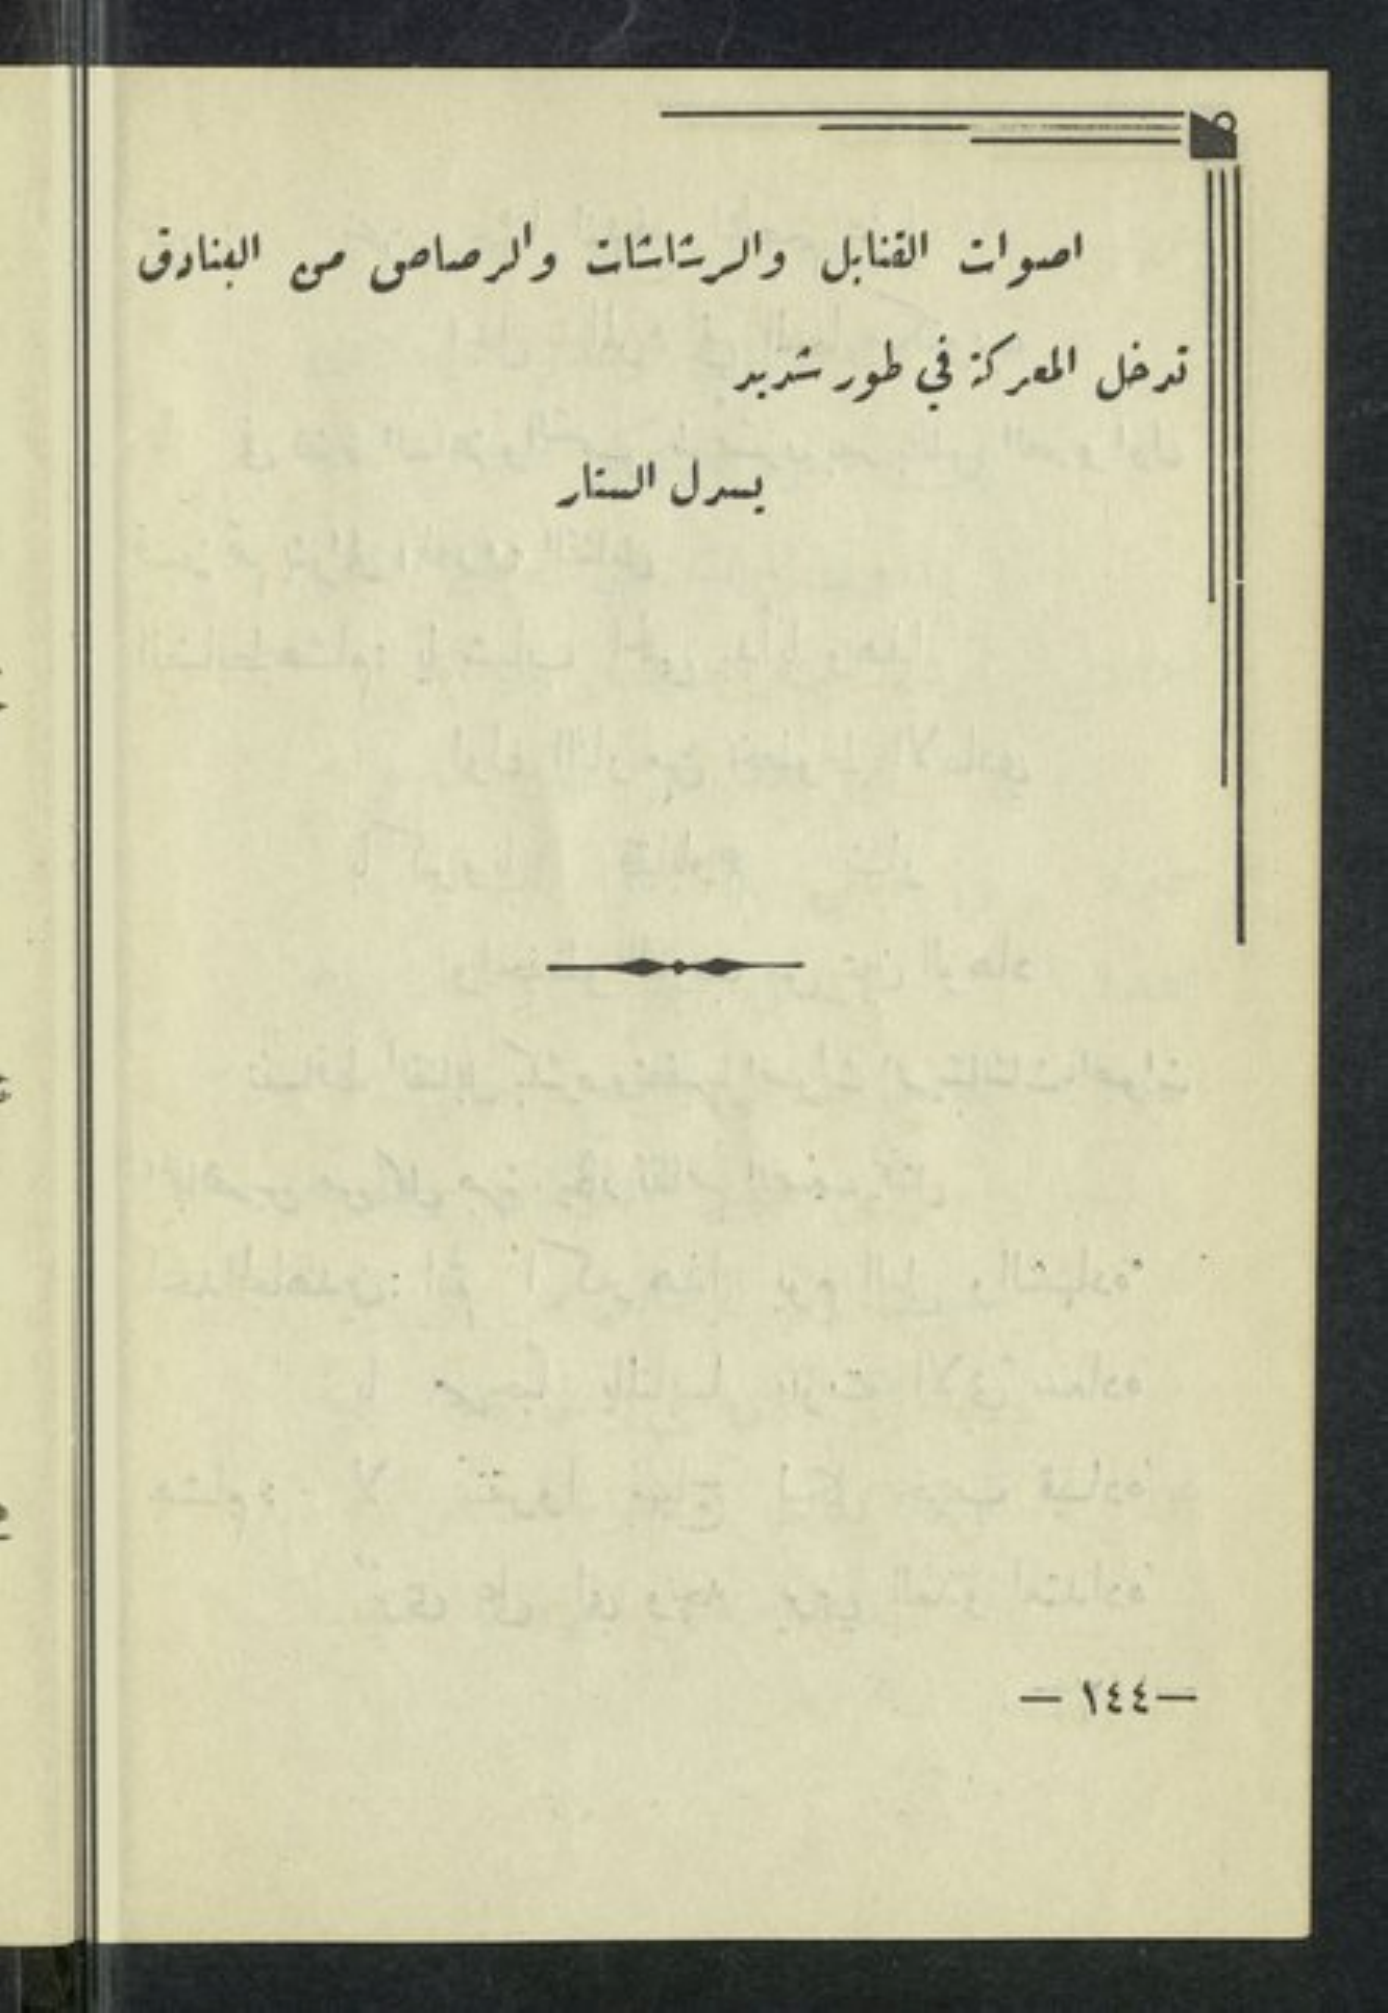 اصوات القنابل والرشاشات والرصاص من البنادق
تدخل المعركة في طور شديد
يسدل الستار
— ١٤٤ —